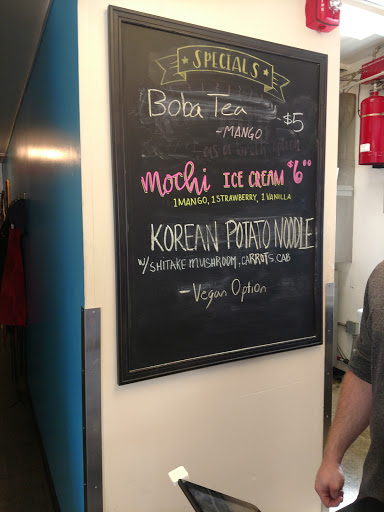 SPECIALS
Boba Tea $5
-MANGO
Mochi ICE CREAM $6°°
1 MANGO, 1 STRAWBERRY, 1 VANILLA
KOREAN POTATO NOODLE
w/ SHITAKE MUSHROOM, CARROTS, CAB
-Vegan Option